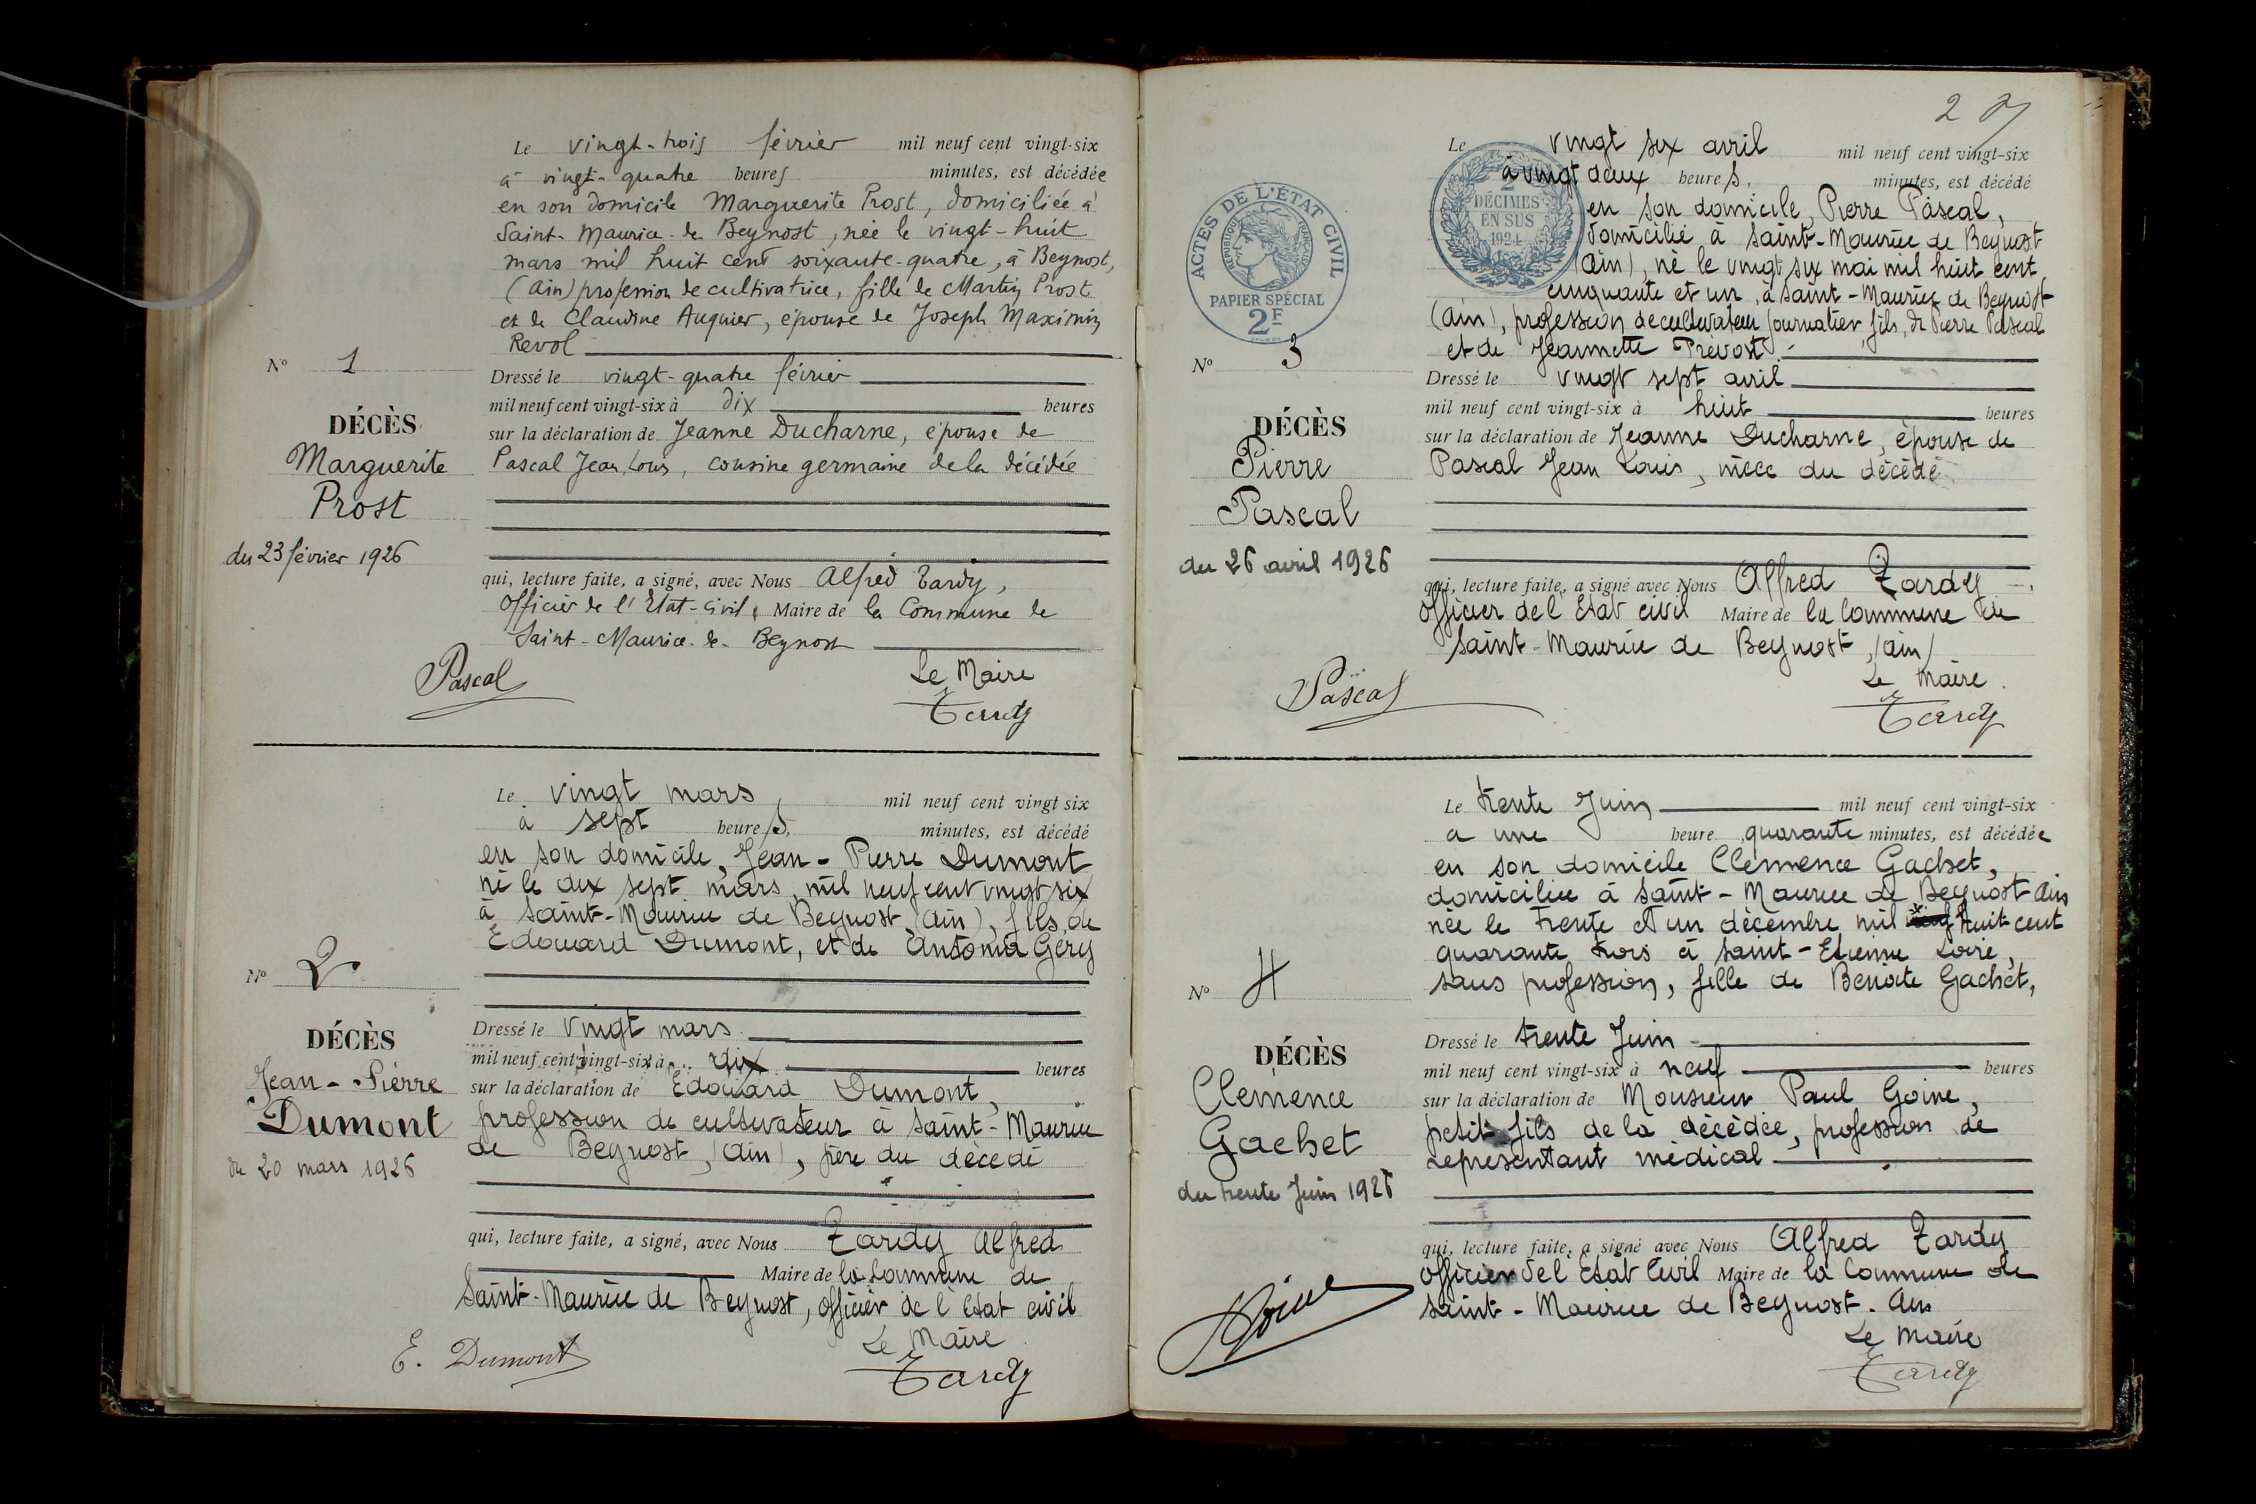 Le vingt-trois février mil neuf cent vingt-six
à vingt-quatre heures minutes, est décédée
en son domicile Marguerite Prost, domiciliée à
Saint-Maurice-de Beynost, née le vingt-huit
mars mil huit cent soixante-quatre, à Beynost,
(Ain) profession de cultivatrice, fille de Martin Prost
et de Claudine Auguier, épouse de Joseph Maximin
Revol
N° 1
Dressé le vingt-quatre février
mil neuf cent vingt-six à dix heures
DÉCÈS
sur la déclaration de Jeanne Ducharne, épouse de
Marguerite
Pascal Jean Louis, cousine germaine de la décédée
Prost
du 23 février 1926
qui, lecture faite, a signé, avec Nous Alfred Tardy,
Officier de l'Etat-Civil, Maire de la Commune de
Saint-Maurice-de-Beynost
Pascal
Le Maire
Tardy
Le vingt mars, mil neuf cent vingt six
à sept heures, minutes, est décédé
en son domicile, Jean-Pierre Dumont
né le dix sept mars mil neuf cent vingt six
à Saint-Maurice de Beynost (Ain), fils de
Edouard Dumont, et de Antonia Gery
N° 2
Dressé le vingt mars
DÉCÈS
mil neuf cent vingt-six à dix heures
Jean-Pierre
sur la déclaration de Edouard Dumont,
Dumont
profession de cultivateur à Saint-Maurice
de Beynost, (Ain), père du décédé
du 20 mars 1926
qui, lecture faite, a signé, avec Nous Tardy Alfred
Maire de la Commune de
Saint-Maurice de Beynost, officier de l'Etat civil
E. Dumont
Le Maire
Tardy
2
Le vingt six avril mil neuf cent vingt-six
à vingt deux heures, minutes, est décédé
en son domicile, Pierre Pascal,
domicilié à Saint-Maurice de Beynost
(Ain), né le vingt six mai mil huit cent
cinquante et un, à Saint-Maurice de Beynost
(Ain), profession de cultivateur journalier, fils, de Pierre Pascal
et de Jeannette Prévost.
ACTES DE L'ÉTAT CIVIL
RÉPUBLIQUE FRANÇAISE
PAPIER SPÉCIAL
2F
2
DÉCIMES
EN SUS
1924
N° 3
Dressé le vingt sept avril
mil neuf cent vingt-six à huit heures
DÉCÈS
sur la déclaration de Jeanne Ducharne, épouse de
Pierre
Pascal Jean Louis, nièce du décédé
Pascal
du 26 avril 1926
qui, lecture faite, a signé avec Nous Alfred Tardy
Officier de l'Etat civil Maire de la Commune de
Saint-Maurice de Beynost, (Ain)
Pascal
Le Maire.
Tardy
Le trente Juin mil neuf cent vingt-six
a une heure quarante minutes, est décédée
en son domicile Clémence Gachet,
domiciliée à Saint-Maurice de Beynost Ain
née le trente et un décembre mil huit cent
quarante trois à Saint-Etienne Loire,
sans profession, fille de Benoite Gachet,
N° 4
DÉCÈS
Dressé le trente Juin
mil neuf cent vingt-six à neuf heures
Clémence
sur la déclaration de Monsieur Paul Goine,
Gachet
petit-fils de la décédée, profession de
représentant médical
du trente Juin 1926
qui, lecture faite, a signé avec Nous Alfred Tardy
Officier de l'Etat Civil Maire de la Commune de
Saint-Maurice de Beynost. Ain
Goine
Le Maire
Tardy